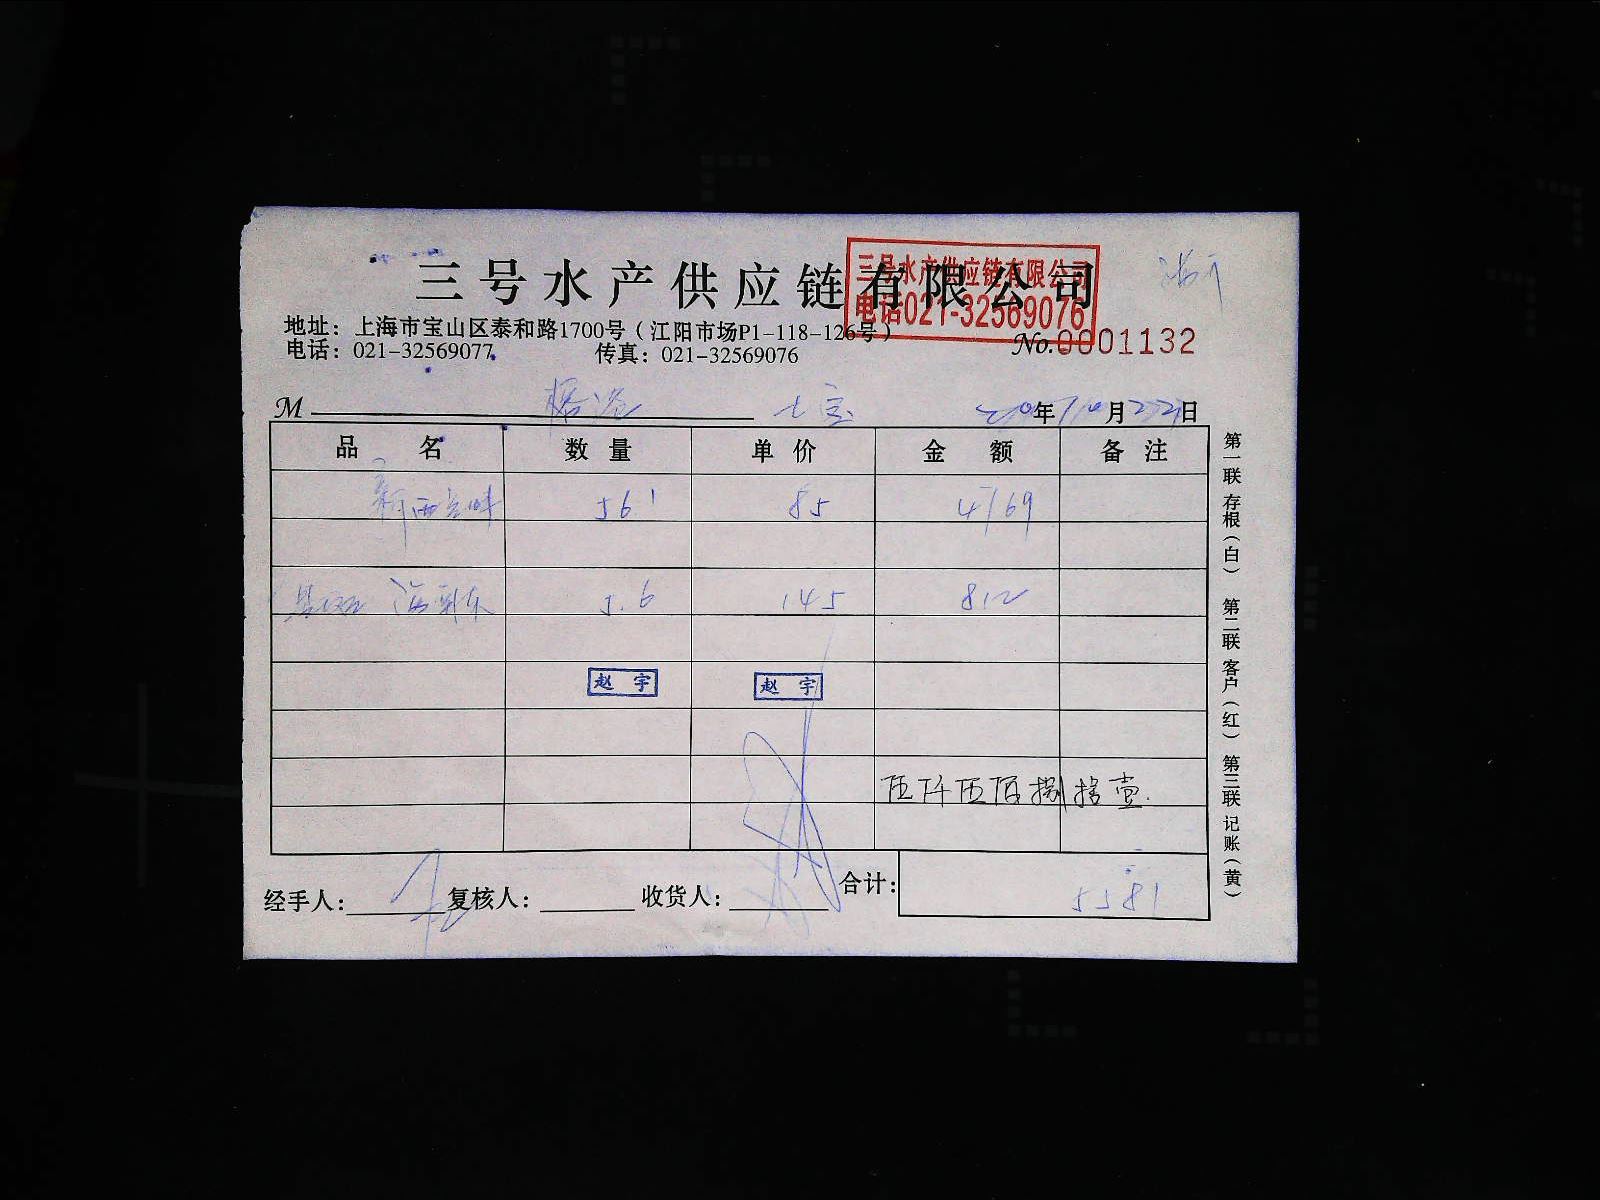 三号水产供应链有限公司
三号水产供应链有限公司
电话021-32569076
地址：上海市宝山区泰和路1700号（江阳市场P1-118-126号）
电话：021-32569077 传真：021-32569076
No.0001132
M 七宝 年10月22日
品名 数量 单价 金额 备注
新西兰 561 85 4769
5.6 145 812
赵宇 赵宇
伍仟伍佰捌拾壹.
经手人： 复核人： 收货人： 合计： 5581
第一联 存根（白） 第二联 客户（红） 第三联 记账（黄）